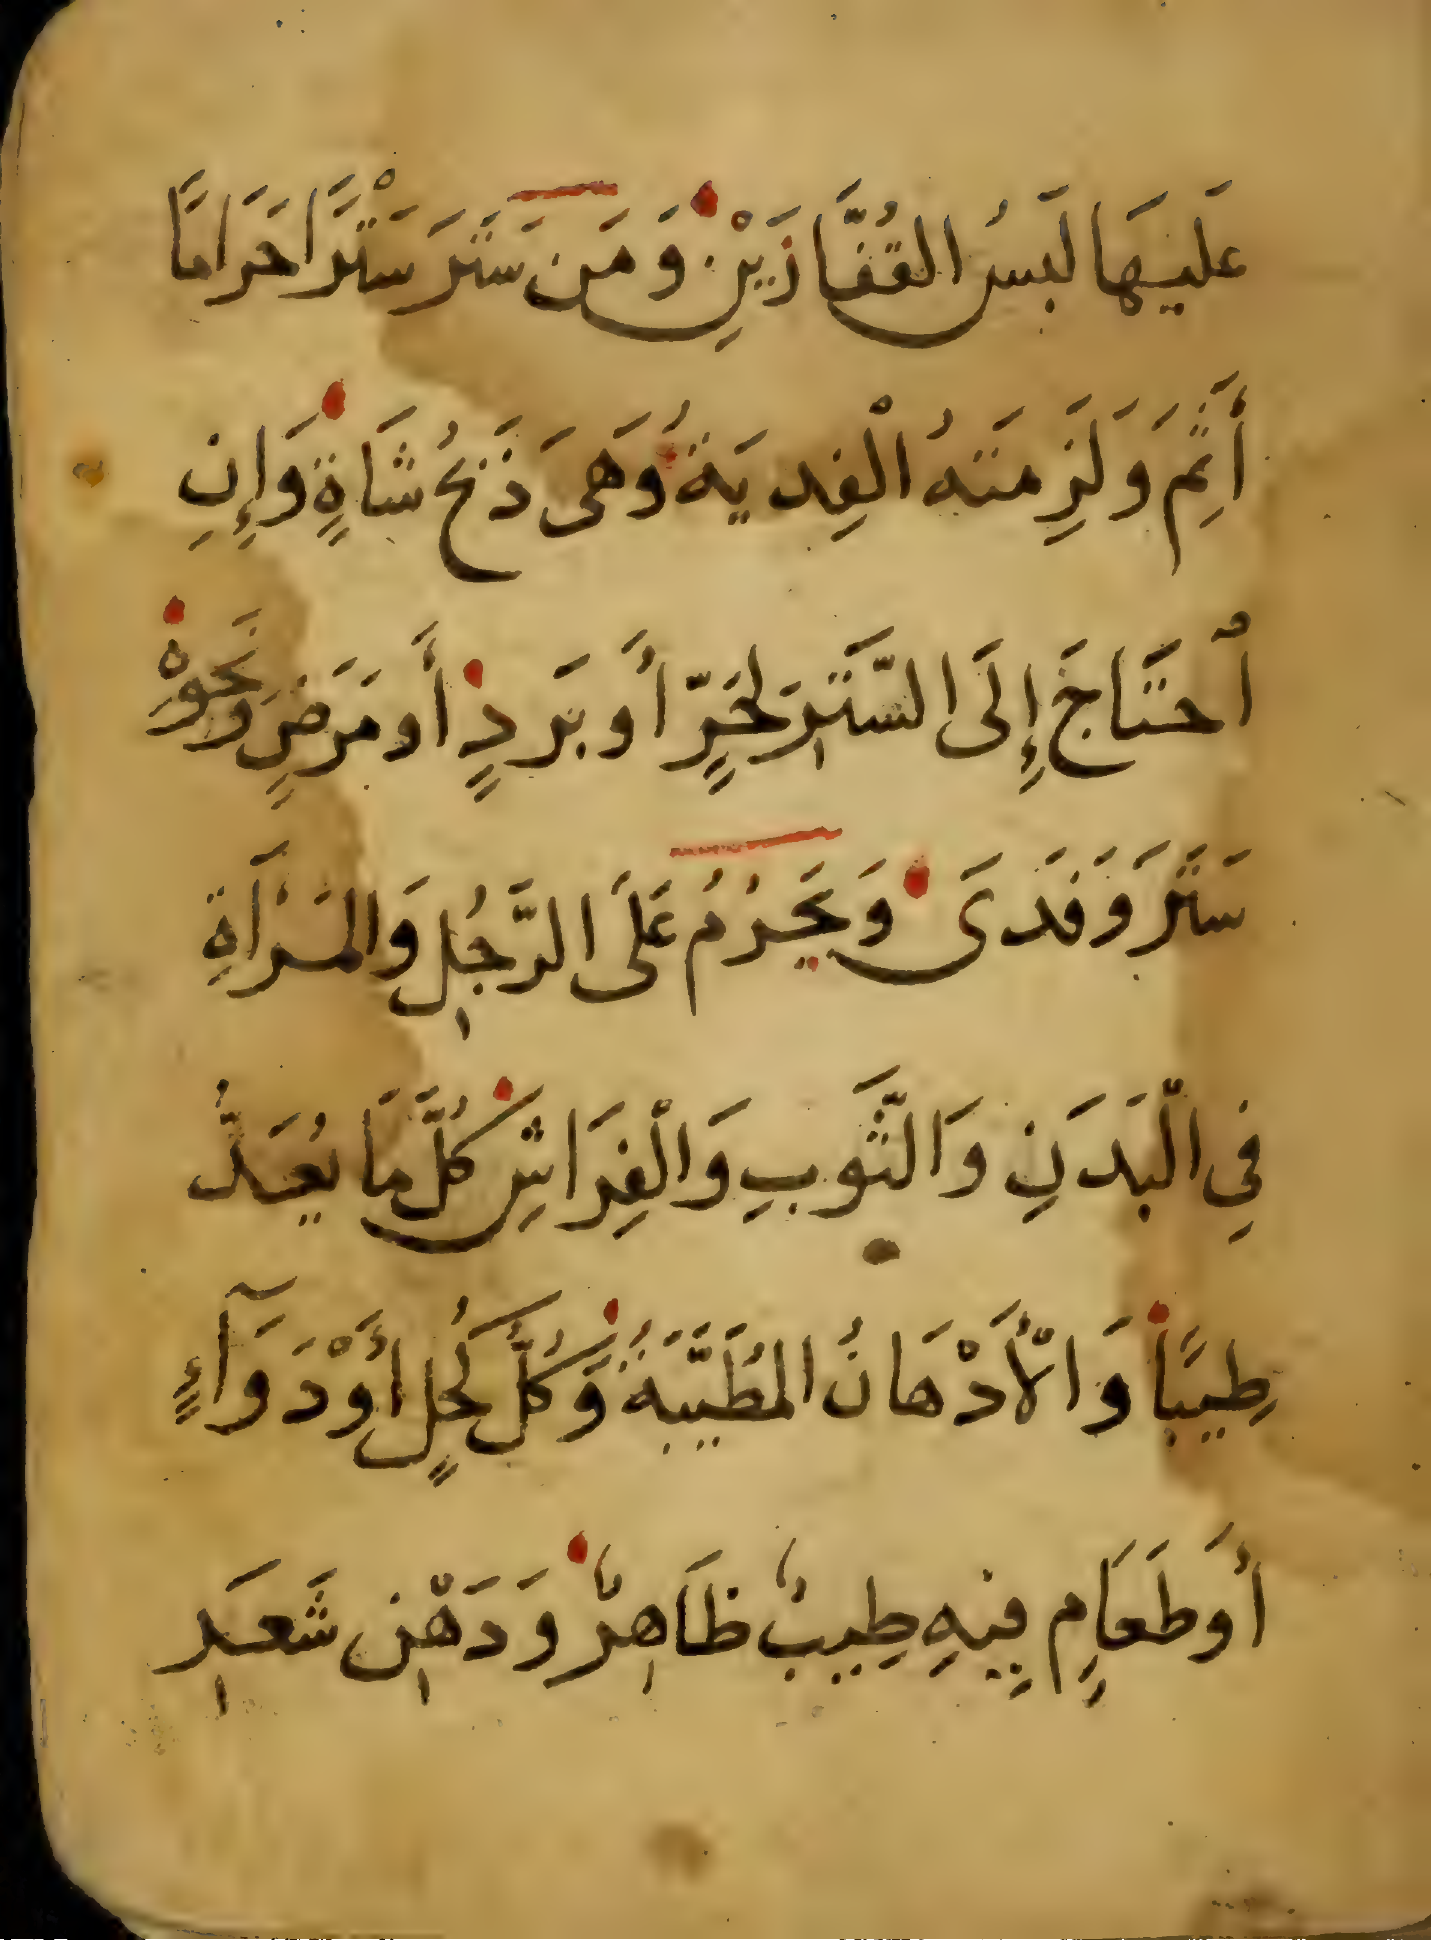 عَلَيهَا لُبَسُ القُفَّازَيْنِ وَمَن سَتَرَ سَتْرًا حَرَامًا
أَثِمَ وَلَزِمَتهُ الْفِديَةُ وَهَىَ ذَبحُ شَاةٍ وَإِنِ
ٱحتَاجَ إِلَى السَّترِ لِحَرٍّ أَو بَردٍ أَو مَرَضٍ وَنَحوِهِ
سَتَرَ وَفَدَى وَيَحرُمُ عَلَى الرَّجُلِ وَالمَرْأَةِ
فِي الْبَدَنِ وَالثَّوبِ وَالْفِرَاشِ كُلُّ مَا يُعَدُّ
طِيبًا وَالْأَدْهَانُ المُطَيَّبَةُ وَكُلُّ كُحلٍ أَوْ دَوَآءٍ
أَو طَعَامٍ فِيهِ طِيبٌ ظَاهِرٌ وَدَهْنِ شَعَرِ